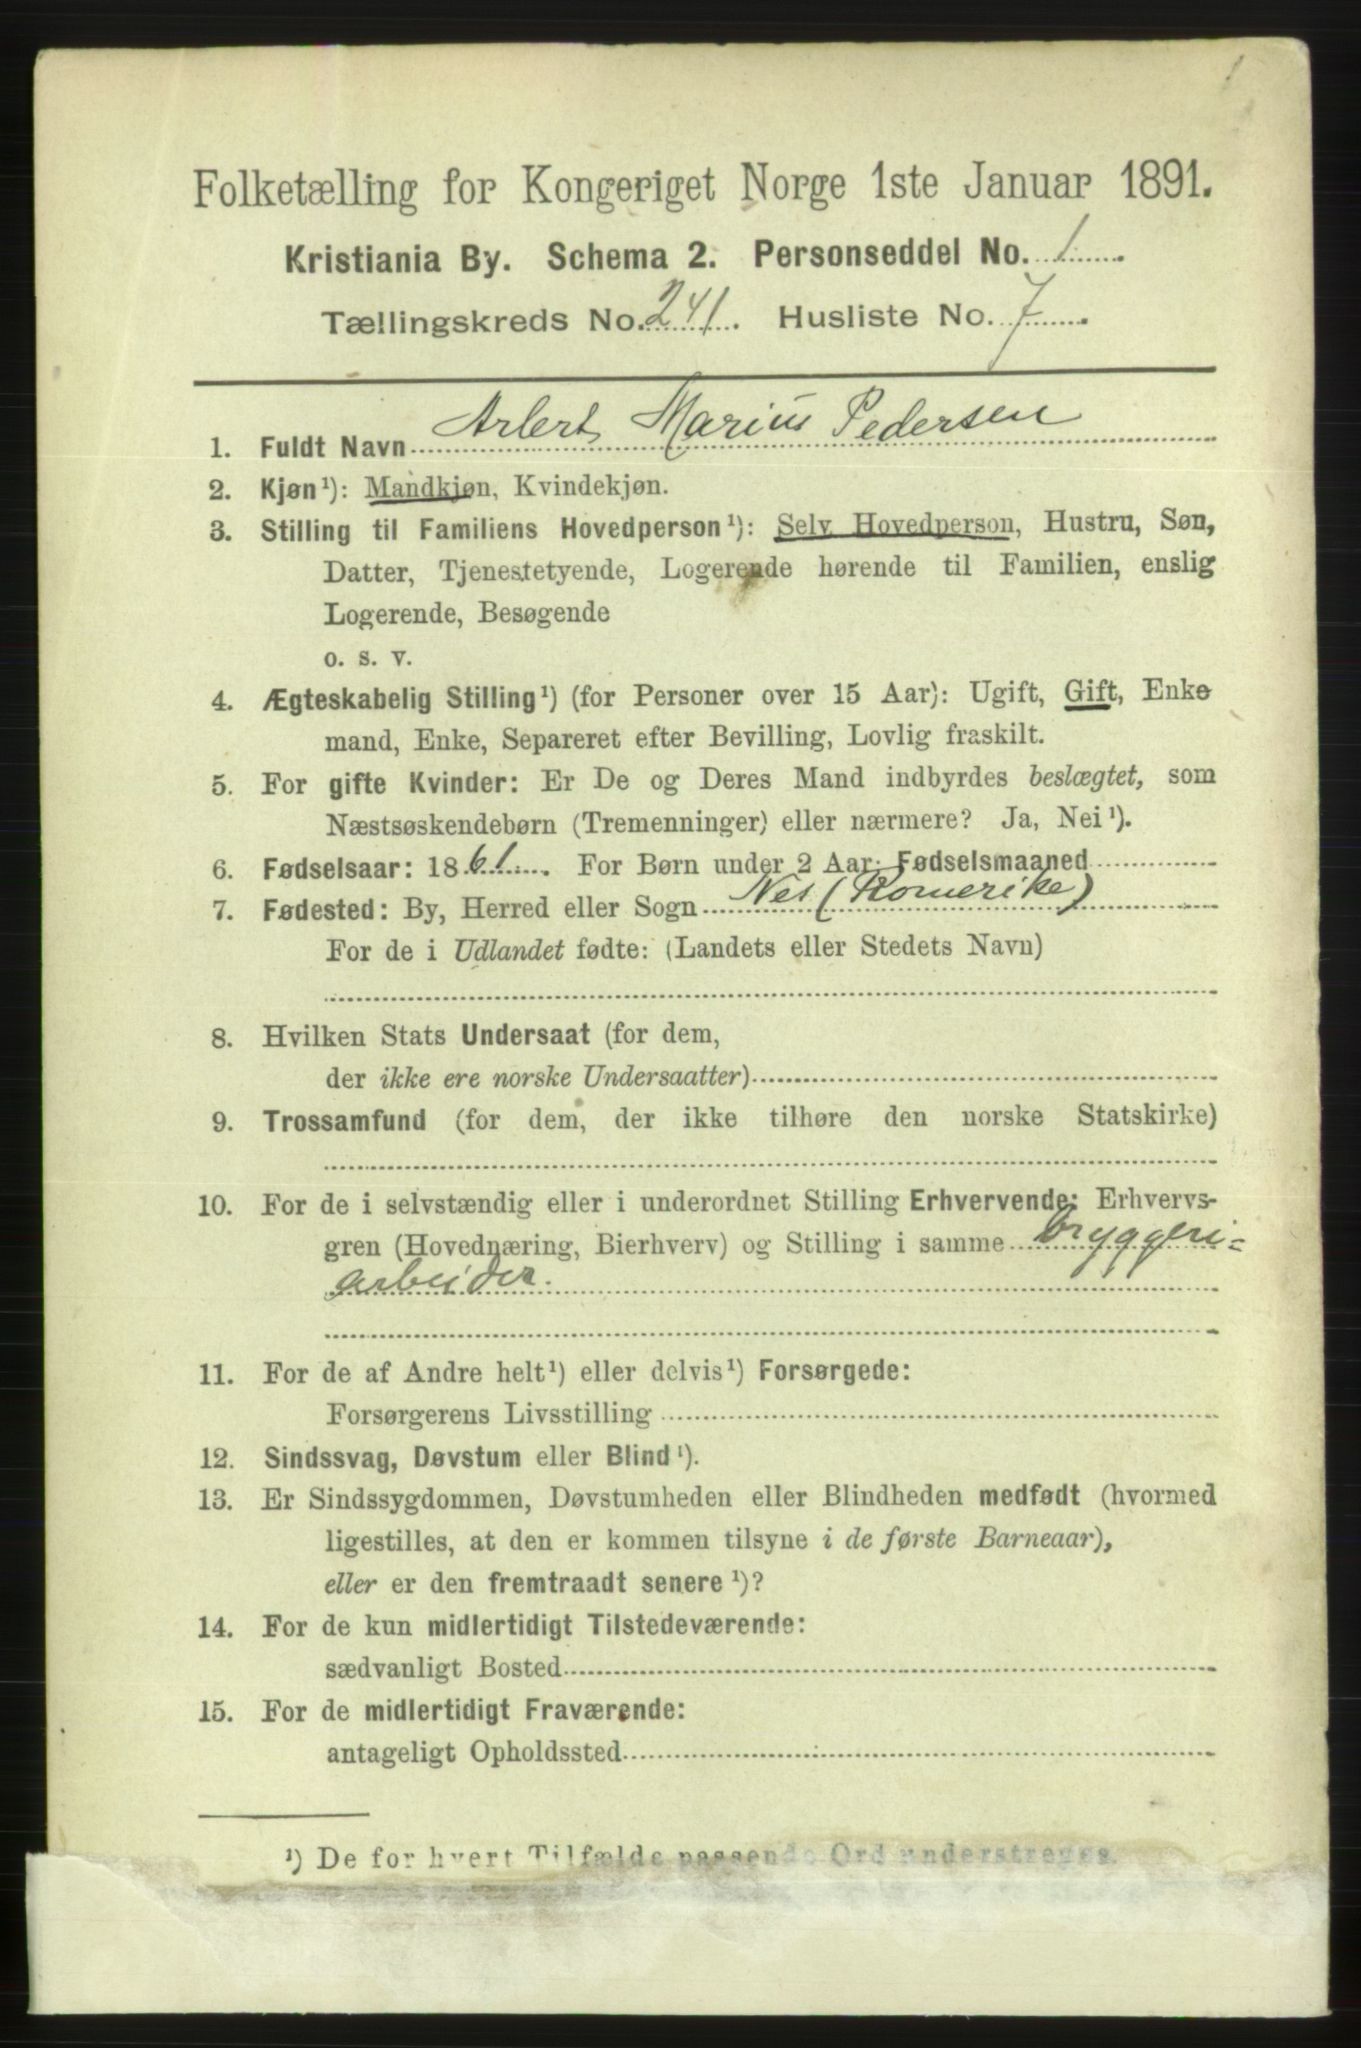 1
Folketælling for Kongeriget Norge 1ste Januar 1891.
Kristiania By. Schema 2. Personseddel No. 1
Tællingskreds No. 241. Husliste No. 7
1. Fuldt Navn Arlert Marius Pedersen
2. Kjøn¹): Mandkjøn, Kvindekjøn.
3. Stilling til Familiens Hovedperson¹): Selv Hovedperson, Hustru, Søn,
Datter, Tjenestetyende, Logerende hørende til Familien, enslig
Logerende, Besøgende
o. s. v.
4. Ægteskabelig Stilling¹) (for Personer over 15 Aar): Ugift, Gift, Enke
mand, Enke, Separeret efter Bevilling, Lovlig fraskilt.
5. For gifte Kvinder: Er De og Deres Mand indbyrdes beslægtet, som
Næstsøskendebørn (Tremenninger) eller nærmere? Ja, Nei¹).
6. Fødselsaar: 1861. For Børn under 2 Aar: Fødselsmaaned
7. Fødested: By, Herred eller Sogn Nes (Romerike)
For de i Udlandet fødte: (Landets eller Stedets Navn)
8. Hvilken Stats Undersaat (for dem,
der ikke ere norske Undersaatter)
9. Trossamfund (for dem, der ikke tilhøre den norske Statskirke)
10. For de i selvstændig eller i underordnet Stilling Erhvervende: Erhvervs-
gren (Hovednæring, Bierhverv) og Stilling i samme bryggeri=
arbeider.
11. For de af Andre helt¹) eller delvis¹) Forsørgede:
Forsørgerens Livsstilling
12. Sindssvag, Døvstum eller Blind¹).
13. Er Sindssygdommen, Døvstumheden eller Blindheden medfødt (hvormed
ligestilles, at den er kommen tilsyne i de første Barneaar),
eller er den fremtraadt senere¹)?
14. For de kun midlertidigt Tilstedeværende:
sædvanligt Bosted
15. For de midlertidigt Fraværende:
antageligt Opholdssted
¹) De for hvert Tilfælde passende Ord understreges.